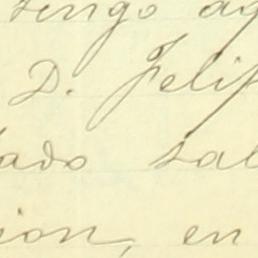 tengo ag
D. Felip
tado sal
ion, en